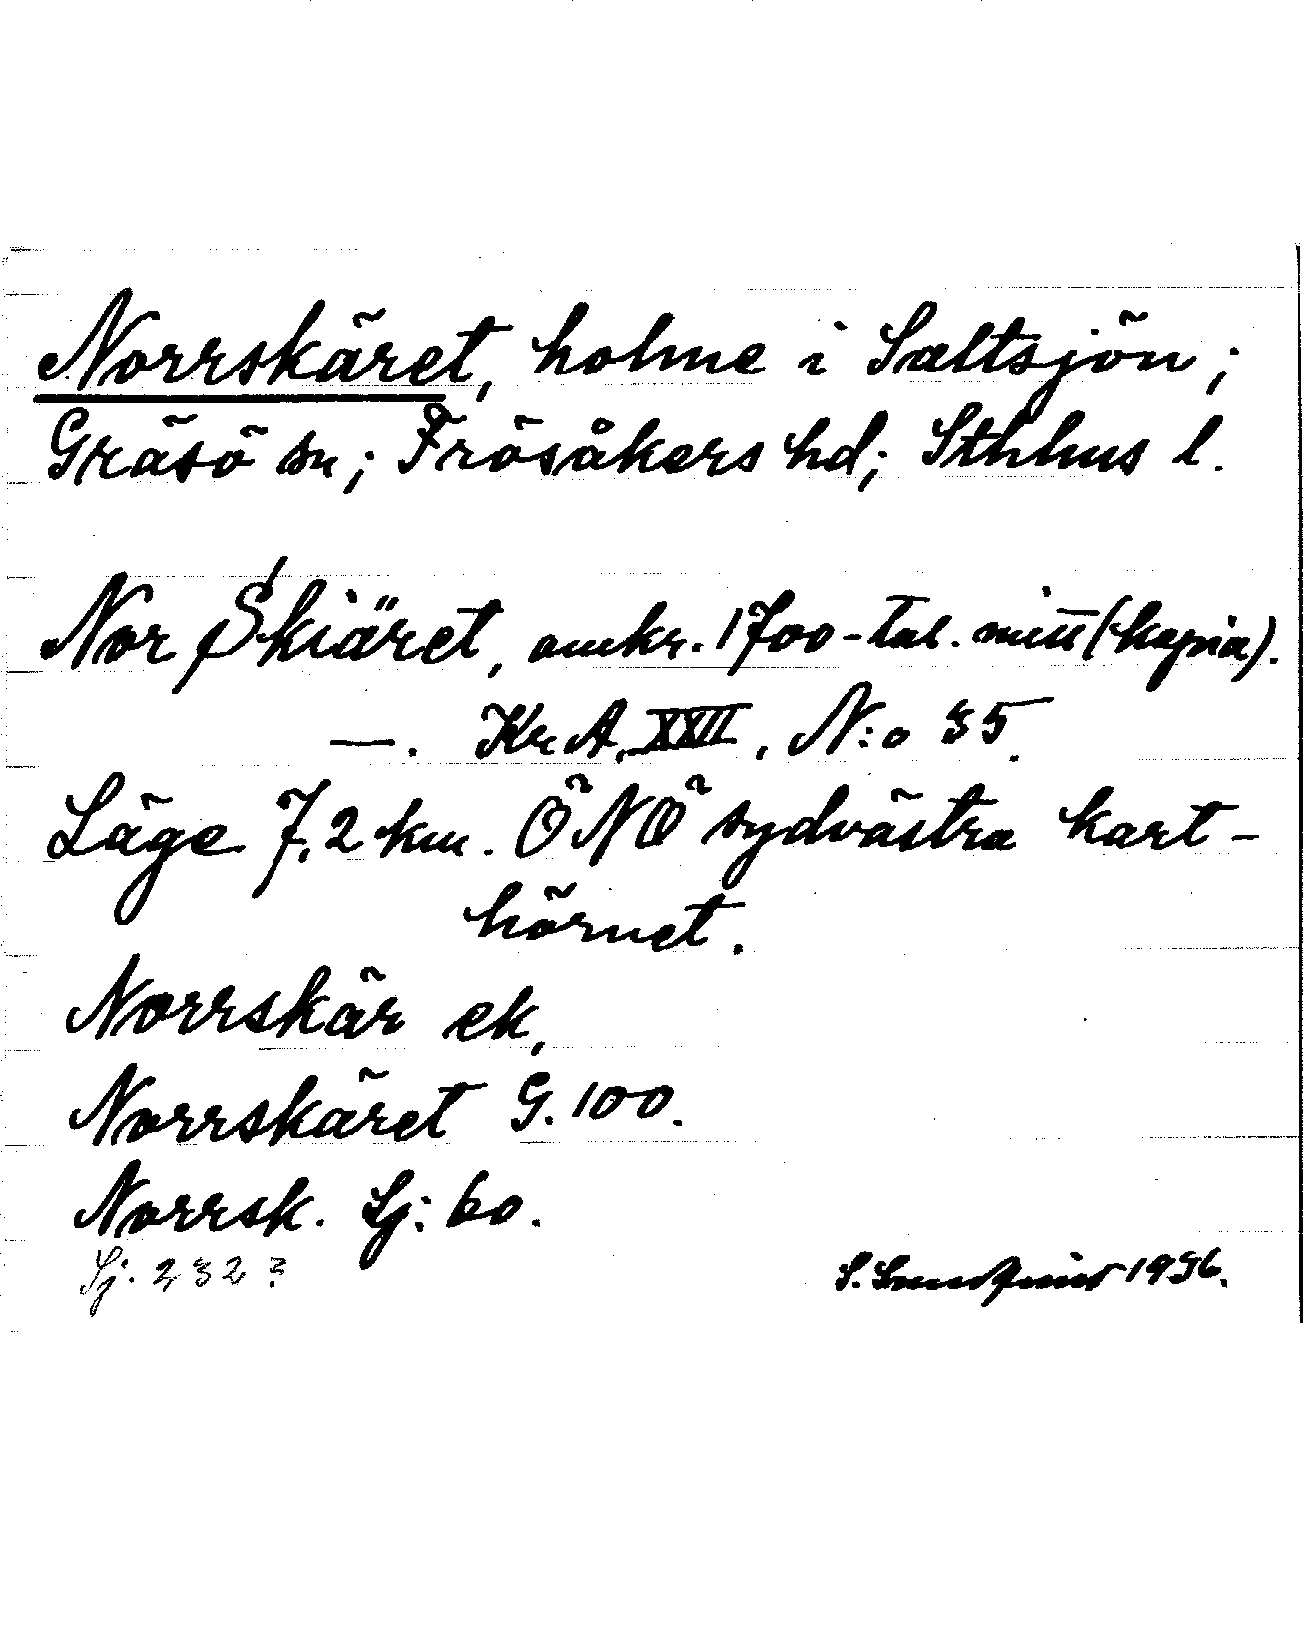 Norrskäret, holme i Saltsjön;
Gräsö sn; Frösåkers hd; Sthlms l.
Nor Skiäret, omkr. 1700-tal. mitt (kopia).
—. Kr A, XXII, N:o 35.
Läge 7,2 km. ÖNÖ sydvästra kart-
hörnet.
Norrskär ek,
Norrskäret G. 100.
Norrsk. Sj: 60.
Sj. 232?
S. 1956.